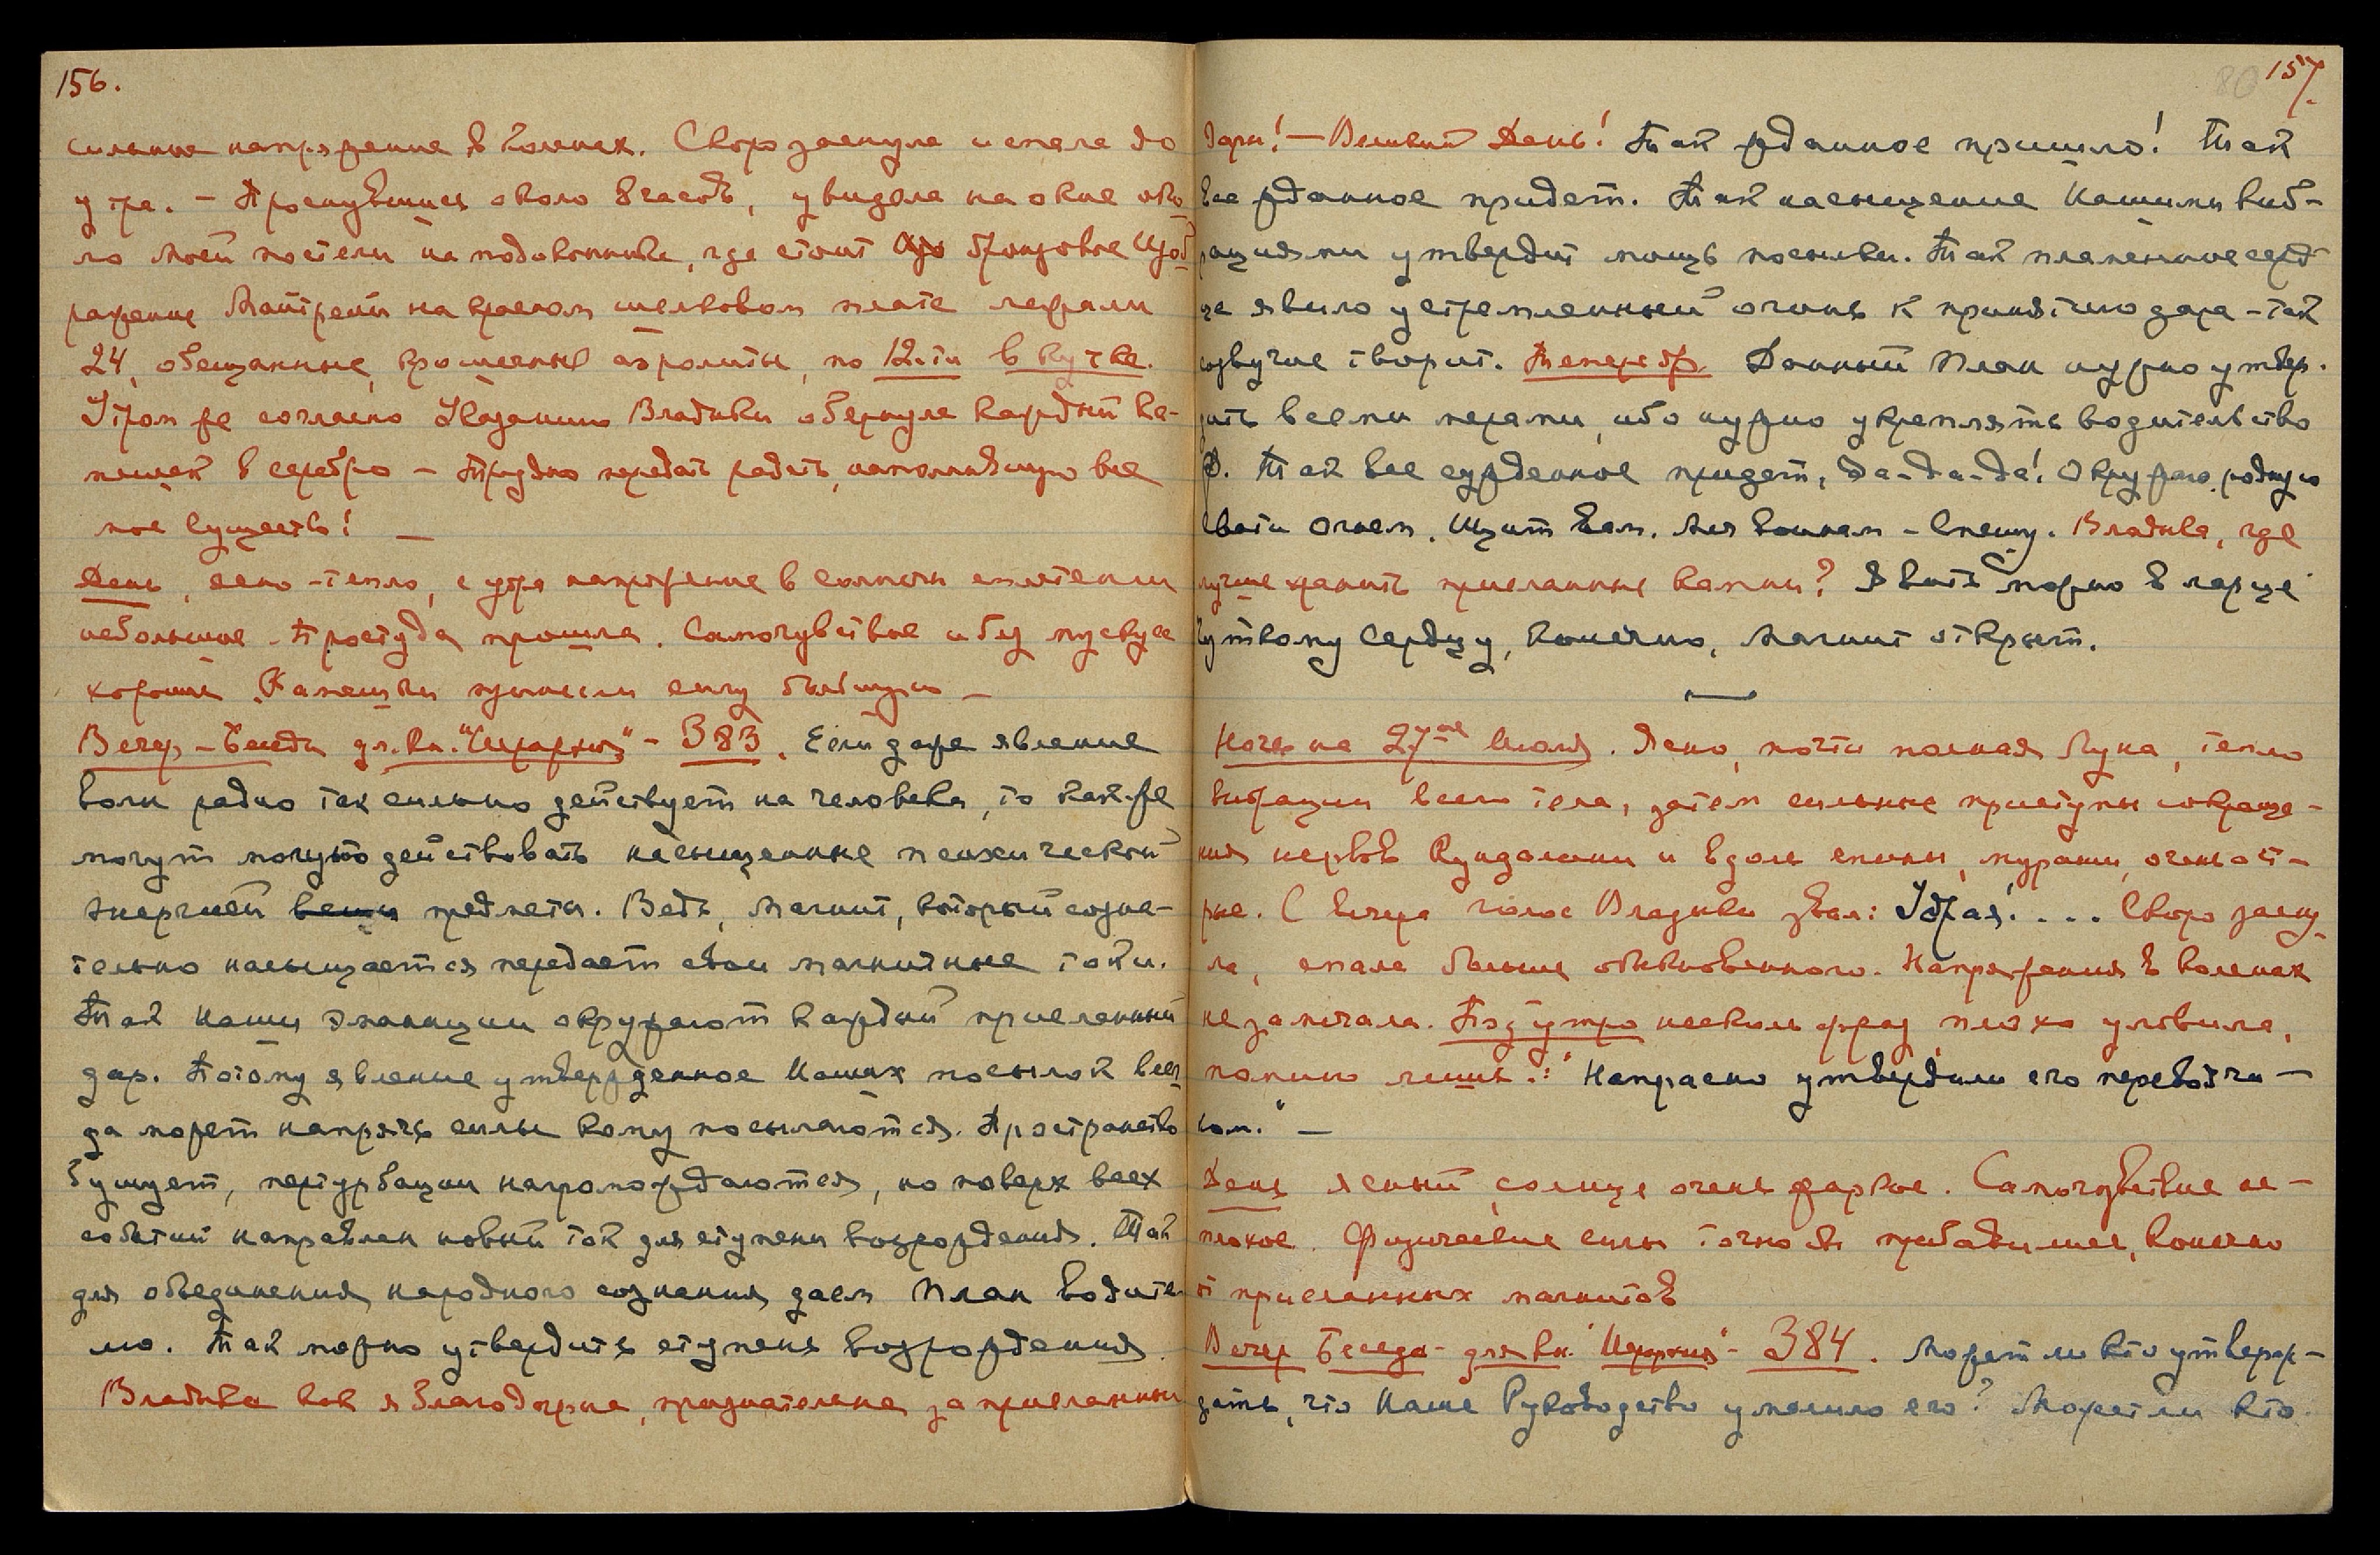 156.
сильное напряжение в коленах. Скоро заснула и спала до
утра. – Проснувшись около 8 часов, увидела на окне око-
ло моей постели на подоконнике, где стоит бронзовое Изоб-
ражение Матрейи на красном шелковом плате лежали
24, обещанные, крошечные аэролиты, по 12-ти в кучке.
Утром же согласно Указанию Владыки обернула каждый ка-
мешек в серебро – Трудно передать радость, наполнившую все
мое существо! –
День, ясно-тепло, с утра напряжение в солнечн сплетении
небольшое. Простуда прошла. Самочувствие и без мускуса
хорошее. Камешки принесли силу большую –
Вечер – Беседа дл. кн. "Иерархия" – 383. Если даже явление
волн радио так сильно действует на человека, то как же
могут мощно действовать насыщенные психической
энергией вещи предметы. Ведь, магнит, который созна-
тельно насыщается передает свои магнитные токи.
Так наши эманации окружают каждый присланный
дар. Потому явление утвержденное Наших посылок всег-
да может напрячь силы кому посылаются. Пространство
бушует, пертурбации нагромождаются, но поверх всех
событий направлен новый ток для ступени возрождения. Так
для объединения народного сознания даем План водите-
лю. Так можно утвердить ступень возрождения.
Владыка как я благодарна, признательна за присланные
80 157.
Дары! – Великий День! Так жданное пришло! Так
все жданное придет. Так насыщение Нашими виб-
рациями утвердит мощь посылки. Так пламенное серд-
це явило устремленный огонь к принятию дара – так
созвучие творит. Теперь ф. Данный План нужно утвер-
дить всеми мерами, ибо нужно укреплять водительство
Ф. Так все сужденное придет, да-да-да! Окружаю родную
Свати Огнем. Щит вам. Моя воинам – Спешу. Владыка, где
лучше хранить присланные камни? Явить можно в ларце
Чуткому Сердцу, конечно, Магнит открыт.
Ночь на 27ое Июля. Ясно, почти полная Луна, тепло
вибрации всего тела, затем сильные приступы сокраще-
ния нервов Кундалини и вдоль спины, мурашки, очень ост-
рые. С вечера голос Владыки звал: Удрая! . . . Скоро засну-
ла, спала больше обыкновенного. Напряжения в коленах
не замечала. Под утро несколько фраз, плохо уловила,
помню лишь: "Напрасно утвердили его переводчи-
ком." –
День ясный, солнце очень жаркое. Самочувствие не-
плохое. Физические силы точно бы прибавились, конечно
от присланных магнитов
Вечер Беседа – для кн. "Иерархия" – 384. Может ли кто утверж-
дать, что Наше Руководство умалило его? Может ли кто